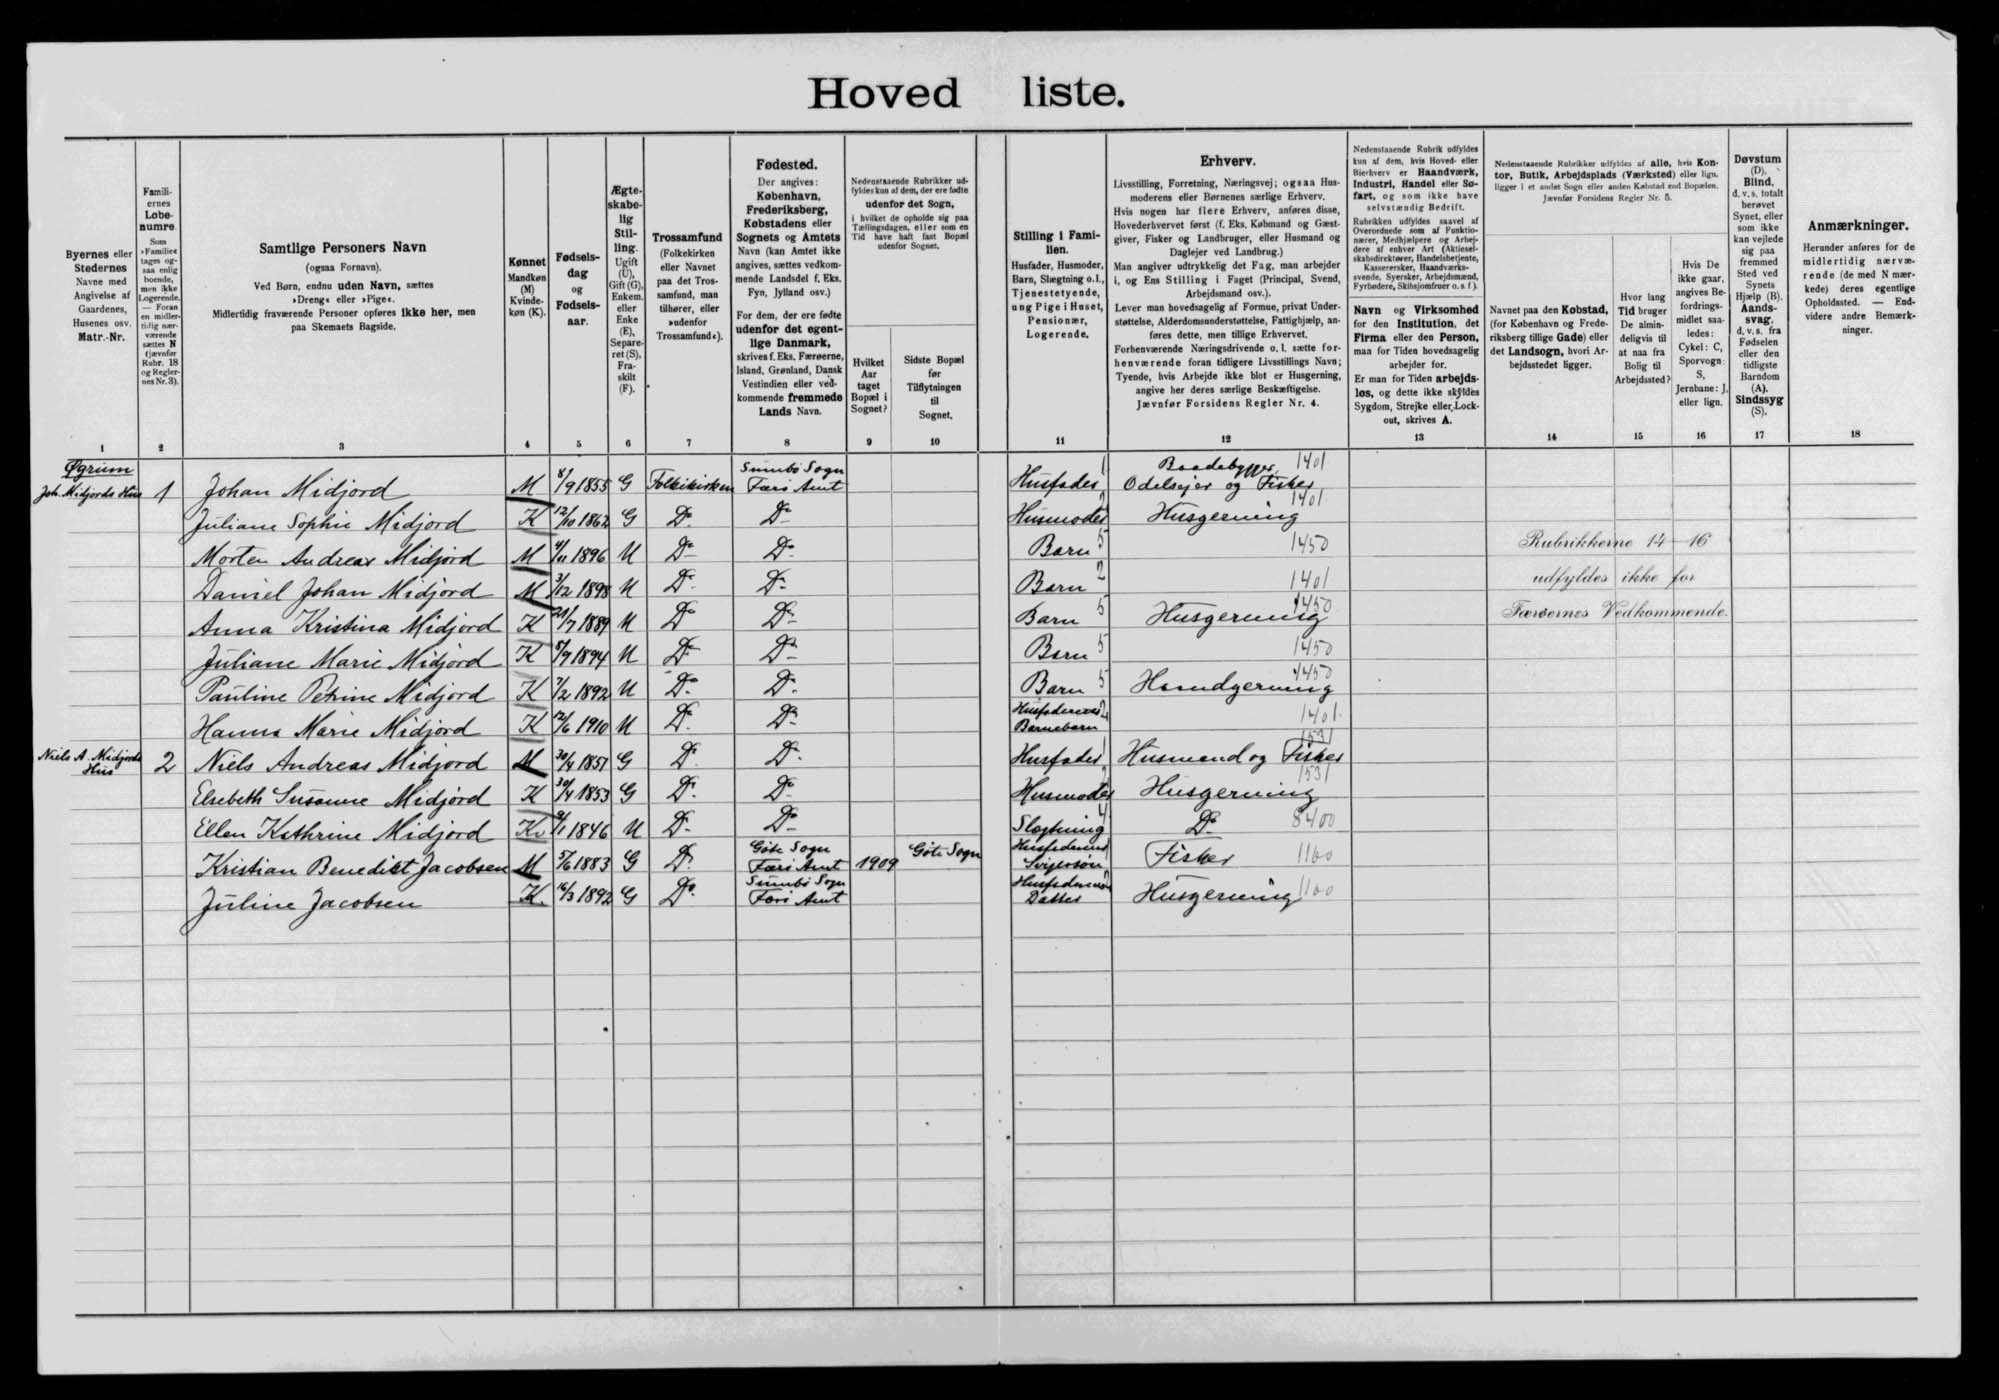 Hoved liste.
Byernes eller
Stedernes
Navne med
Angivelse af
Gaardenes,
Husenes osv.
Matr.-Nr.
1
Famili-
ernes
Løbe-
numre.
Som
»Familie«
tages og-
saa enlig
boende,
men ikke
Logerende.
— Foran
en midler-
tidig nær-
værende
sættes N
(jævnfør
Rubr. 18
og Regler-
nes Nr. 3).
2
Samtlige Personers Navn
(ogsaa Fornavn).
Ved Børn, endnu uden Navn, sættes
»Dreng« eller »Pige«.
Midlertidig fraværende Personer opføres ikke her, men
paa Skemaets Bagside.
3
Kønnet
Mandkøn
(M)
Kvinde-
køn (K).
4
Fødsels-
dag
og
Fødsels-
aar.
5
Ægte-
skabe-
lig
Stil-
ling.
Ugift
(U),
Gift (G),
Enkem.
eller
Enke
(E),
Separe-
ret (S),
Fra-
skilt
(F).
6
Trossamfund
(Folkekirken
eller Navnet
paa det Tros-
samfund, man
tilhører, eller
»udenfor
Trossamfund«).
7
Fødested.
Der angives:
København,
Frederiksberg,
Købstadens eller
Sognets og Amtets
Navn (kan Amtet ikke
angives, sættes vedkom-
mende Landsdel f. Eks.
Fyn, Jylland osv.)
For dem, der ere fødte
udenfor det egent-
lige Danmark,
skrives f. Eks. Færøerne,
Island, Grønland, Dansk
Vestindien eller ved-
kommende fremmede
Lands Navn.
8
Nedenstaaende Rubrikker ud-
fyldes kun af dem, der ere fødte
udenfor det Sogn,
i hvilket de opholde sig paa
Tællingsdagen, eller som en
Tid have haft fast Bopæl
udenfor Sognet.
Hvilket
Aar
taget
Bopæl i
Sognet?
9
Sidste Bopæl
før
Tilflytningen
til
Sognet.
10
Stilling i Fami-
lien.
Husfader, Husmoder,
Barn, Slægtning o. l.,
Tjenestetyende,
ung Pige i Huset,
Pensionær,
Logerende.
11
Erhverv.
Livsstilling, Forretning, Næringsvej; ogsaa Hus-
moderens eller Børnenes særlige Erhverv.
Hvis nogen har flere Erhverv, anføres disse,
Hovederhvervet først (f. Eks. Købmand og Gæst-
giver, Fisker og Landbruger, eller Husmand og
Daglejer ved Landbrug.)
Man angiver udtrykkelig det Fag, man arbejder
i, og Ens Stilling i Faget (Principal, Svend,
Arbejdsmand osv.).
Lever man hovedsagelig af Formue, privat Under-
støttelse, Alderdomsunderstøttelse, Fattighjælp, an-
føres dette, men tillige Erhvervet.
Forhenværende Næringsdrivende o. l. sætte for-
henværende foran tidligere Livsstillings Navn;
Tyende, hvis Arbejde ikke blot er Husgerning,
angive her deres særlige Beskæftigelse.
Jævnfør Forsidens Regler Nr. 4.
12
Nedenstaaende Rubrik udfyldes
kun af dem, hvis Hoved- eller
Bierhverv er Haandværk,
Industri, Handel eller Sø-
fart, og som ikke have
selvstændig Bedrift.
Rubrikken udfyldes saavel af
Overordnede som af Funktio-
nærer, Medhjælpere og Arbej-
dere af enhver Art (Aktiesel-
skabsdirektører, Handelsbetjente,
Kasserersker, Haandværks-
svende, Syersker, Arbejdsmænd,
Fyrbødere, Skibsjomfruer o. s. f.).
Navn og Virksomhed
for den Institution, det
Firma eller den Person,
man for Tiden hovedsagelig
arbejder for.
Er man for Tiden arbejds-
løs, og dette ikke skyldes
Sygdom, Strejke eller Lock-
out, skrives A.
13
Nedenstaaende Rubrikker udfyldes af alle, hvis Kon-
tor, Butik, Arbejdsplads (Værksted) eller lign.
ligger i et andet Sogn eller anden Købstad end Bopælen.
Jævnfør Forsidens Regler Nr. 5.
Navnet paa den Købstad,
(for København og Frede-
riksberg tillige Gade) eller
det Landsogn, hvori Ar-
bejdsstedet ligger.
14
Hvor lang
Tid bruger
De almin-
deligvis til
at naa fra
Bolig til
Arbejdssted?
15
Hvis De
ikke gaar,
angives Be-
fordrings-
midlet saa-
ledes:
Cykel: C,
Sporvogn:
S,
Jernbane: J,
eller lign.
16
Døvstum
(D),
Blind,
d. v. s. totalt
berøvet
Synet, eller
som ikke
kan vejlede
sig paa
fremmed
Sted ved
Synets
Hjælp (B).
Aands-
svag,
d. v. s. fra
Fødselen
eller den
tidligste
Barndom
(A).
Sindssyg
(S).
17
Anmærkninger.
Herunder anføres for de
midlertidig nærvæ-
rende (de med N mær-
kede) deres egentlige
Opholdssted. — End-
videre andre Bemærk-
ninger.
18
Øgrum
Joh. Midjords Hus 1 Johan Midjord M 8/9 1855 G Folkekirken Sumbø Sogn Færø Amt Husfader 1 Baadebygger, 1401 Odelsejer og Fisker
Juliane Sophie Midjord K 12/10 1862 G Do Do Husmoder 2 Husgerning 1401
Morten Andreas Midjord M 4/11 1896 U Do Do Barn 5 1450
Rubrikkerne 14-16
Daniel Johan Midjord M 3/12 1898 U Do Do Barn 2 1401
udfyldes ikke for
Anna Kristina Midjord K 21/7 1889 U Do Do Barn 5 Husgerning 1450
Færøernes Vedkommende.
Juliane Marie Midjord K 8/9 1894 U Do Do Barn 5 1450
Pauline Petrine Midjord K 7/2 1892 U Do Do Barn 5 Haandgerning 1450
Hanna Marie Midjord K 12/6 1910 U Do Do Husfaderens Barnebarn 2 1401
Niels A. Midjords Hus 2 Niels Andreas Midjord M 30/4 1851 G Do Do Husfader 1 Husmand og Fisker 1531
Elsebeth Susanne Midjord K 30/4 1853 G Do Do Husmoder 2 Husgerning 1531
Ellen Kathrine Midjord Kv 9/1 1846 U Do Do Slægtning 4 Do 8400
Kristian Benedikt Jacobsen M 5/6 1883 G Do Gøte Sogn Færø Amt 1909 Gøte Sogn Husfaderens Svigersøn Fisker 1100
Juline Jacobsen K. 16/3 1892 G Do Sumbø Sogn Færø Amt Husfaderens Datter Husgerning 1100